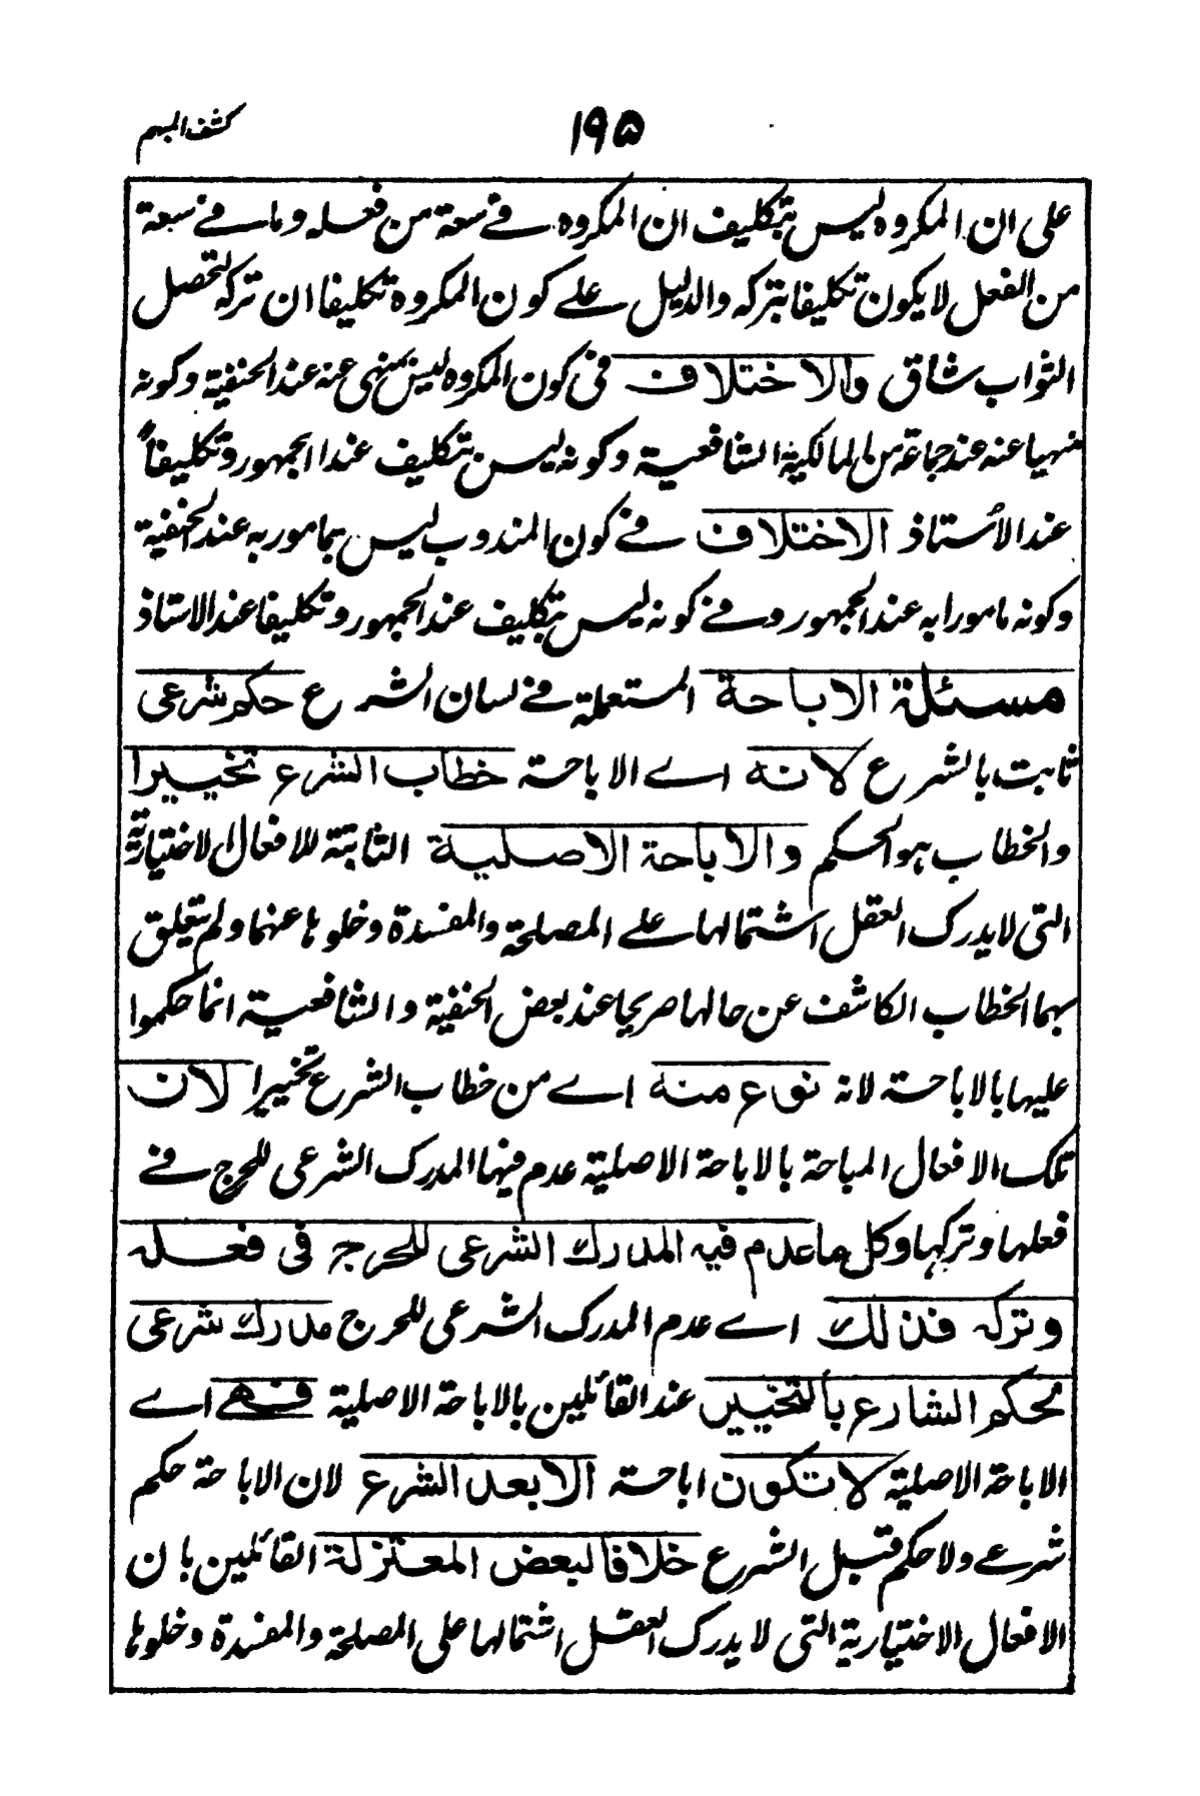 كشف المبهم
١٩٥
على ان المكروه ليس بتكليف ان المكروه في سعة من فعله وما في سعة
من الفعل لا يكون تكليفا بتركه والدليل على كون المكروه تكليفا ان تركه لتحصل
الثواب شاق والاختلاف في كون المكروه ليس بمنهى عنه عند الحنفية وكونه
منهيا عنه عند جماعة من المالكية الشافعية وكونه ليس بتكليف عند الجمهور وتكليفاً
عند الأستاذ الاختلاف في كون المندوب ليس بمامور به عند الحنفية
وكونه مامورا به عند الجمهور وفي كونه ليس بتكليف عند الجمهور وتكليفا عند الاستاذ
مسئلة الاباحة المستعملة في لسان الشرع حكم شرعى
ثابت بالشرع لانه اے الاباحة خطاب الشرع تخييرا
والخطاب هو الحكم والاباحة الاصلية الثابتة للافعال الاختيارية
التى لا يدرك العقل اشتمالها على المصلحة والمفسدة وخلوها عنهما ولم يتعلق
بهما الخطاب الكاشف عن حالها صريحا عند بعض الحنفية والشافعية انما حكموا
عليها بالاباحة لانه نوع منه اے من خطاب الشرع تخييرا لان
تلك الافعال المباحة بالاباحة الاصلية عدم فيها المدرك الشرعى للحرج في
فعلها وتركها وكل ما عدم فيه المدرك الشرعى للحرج فى فعله
وتركه فذلك اے عدم المدرك الشرعى للحرج مدرك شرعى
لحكم الشارع بالتخيير عند القائلين بالاباحة الاصلية فهے اے
الاباحة الاصلية لا تكون اباحة الا بعد الشرع لان الاباحة حكم
شرعے ولا حكم قبل الشرع خلافا لبعض المعتزلة القائلين بان
الافعال الاختيارية التى لا يدرك العقل اشتمالها على المصلحة والمفسدة وخلوها